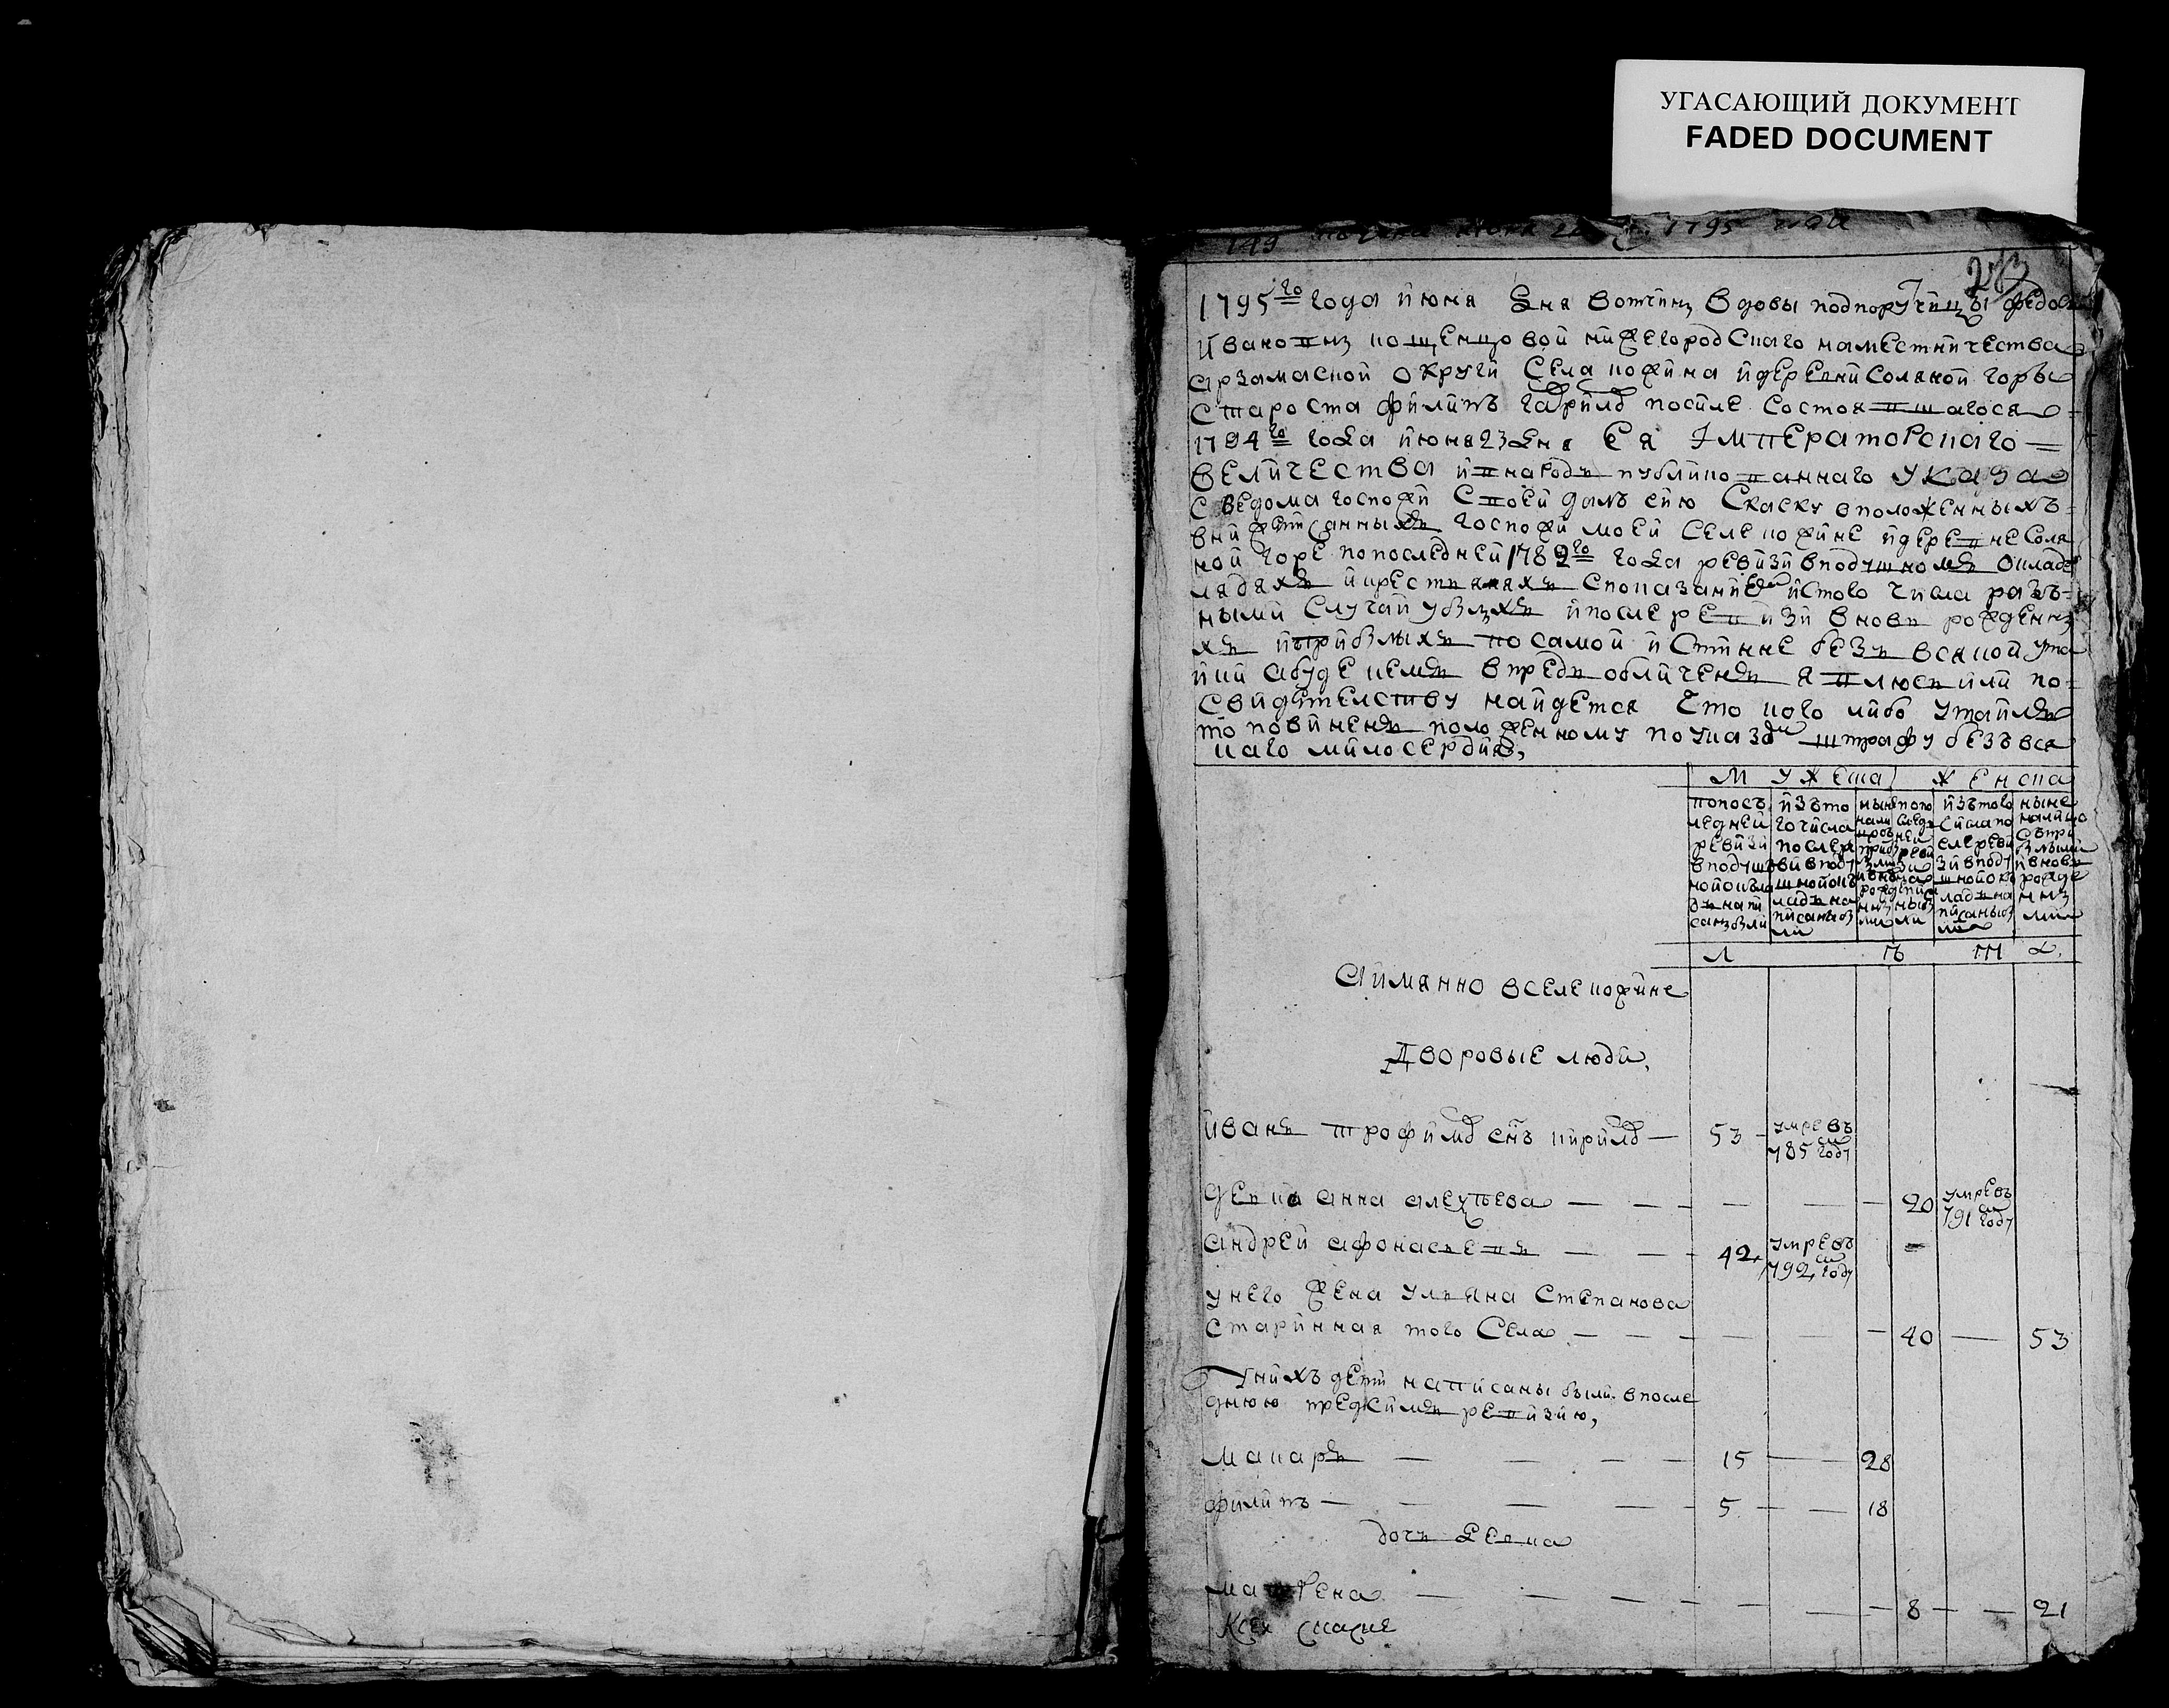 УГАСАЮЩИЙ ДОКУМЕНТ
FADED DOCUMENT
149 1795 года
273
1795го года июня дня вотчины вдовы подпорутчицы федось
ивановны нижегородскаго наместничества
арзамаской округи села кожина и деревни соляной горы
староста филипъ гаврилов после состоявшагося
1794го года июня 23 дня Ея Императорскаго
величества и в народъ публикованнаго указа
с ведома госпожи своей далъ сию скаску в положенныхъ
госпожи моей селе кожине и деревне соля
ной горе по последней 1782го года ревизи в подушномъ окладе
людяхъ и крестьянахъ с показаниемъ ис того числа разъ
ными случаи убылыхъ и после ревизи вновь рожденны
хъ и прибылыхъ по самой истинне безъ всякой ута
йки а буде кемъ впредь обличенъ явлюсь или по
свидетелству найдется что кого либо утаилъ
то повиненъ положенному по указамъ штрафу безъ вся
каго милосердия,
мужеска женска
по пось ледней ревизи в подушъ номъ окъла дъ напи саны были
изъ то го числа после ре визи в поду шной окъ ладъ на писаны бы ли
ныне
изъ того числа по сле реви зи в поду шной окъ ладъ на писаны бы ли
ныне на лицо съ при былыми и вновь рожде нны ми
л ѣ т а
а имянно в селе кожине
Дворовые люди,
иванъ трофимов снъ кирилов — 53 умре въ 785м году
девка анна алексеева — 20 умре въ 791м году
андрей афонасьевъ — 42, умре въ 792м году
у него жена ульяна степанова
старинная того села — 40 — 53
у нихъ дети написаны были в после
днюю пред симъ ревизию,
макаръ — 15 — 28
филипъ — 5 — 18
дочь девка
матрена — 8 — 21
к сей скаске